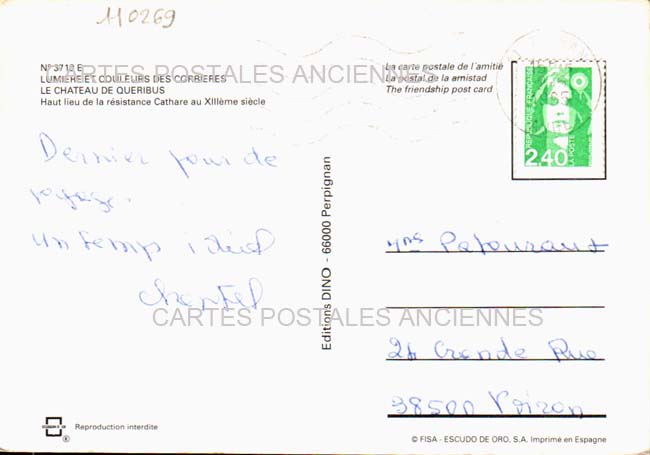 110269
N° 3713 E
LUMIERE ET COULEURS DES CORBIERES
LE CHATEAU DE QUERIBUS
Haut lieu de la résistance Cathare au XIIIème siècle
CARTES POSTALES ANCIENNES
La carte postale de l'amitié
La postal de la amistad
The friendship post card
REPUBLIQUE FRANÇAISE
LA POSTE
2,40
Dernier jour de
voyage.
un temp idéal
Chantal
Editions DINO - 66000 Perpignan
CARTES POSTALES ANCIENNES
24 Grande Rue
38500 Voiron
Reproduction interdite
© FISA - ESCUDO DE ORO, S.A. Imprimé en Espagne